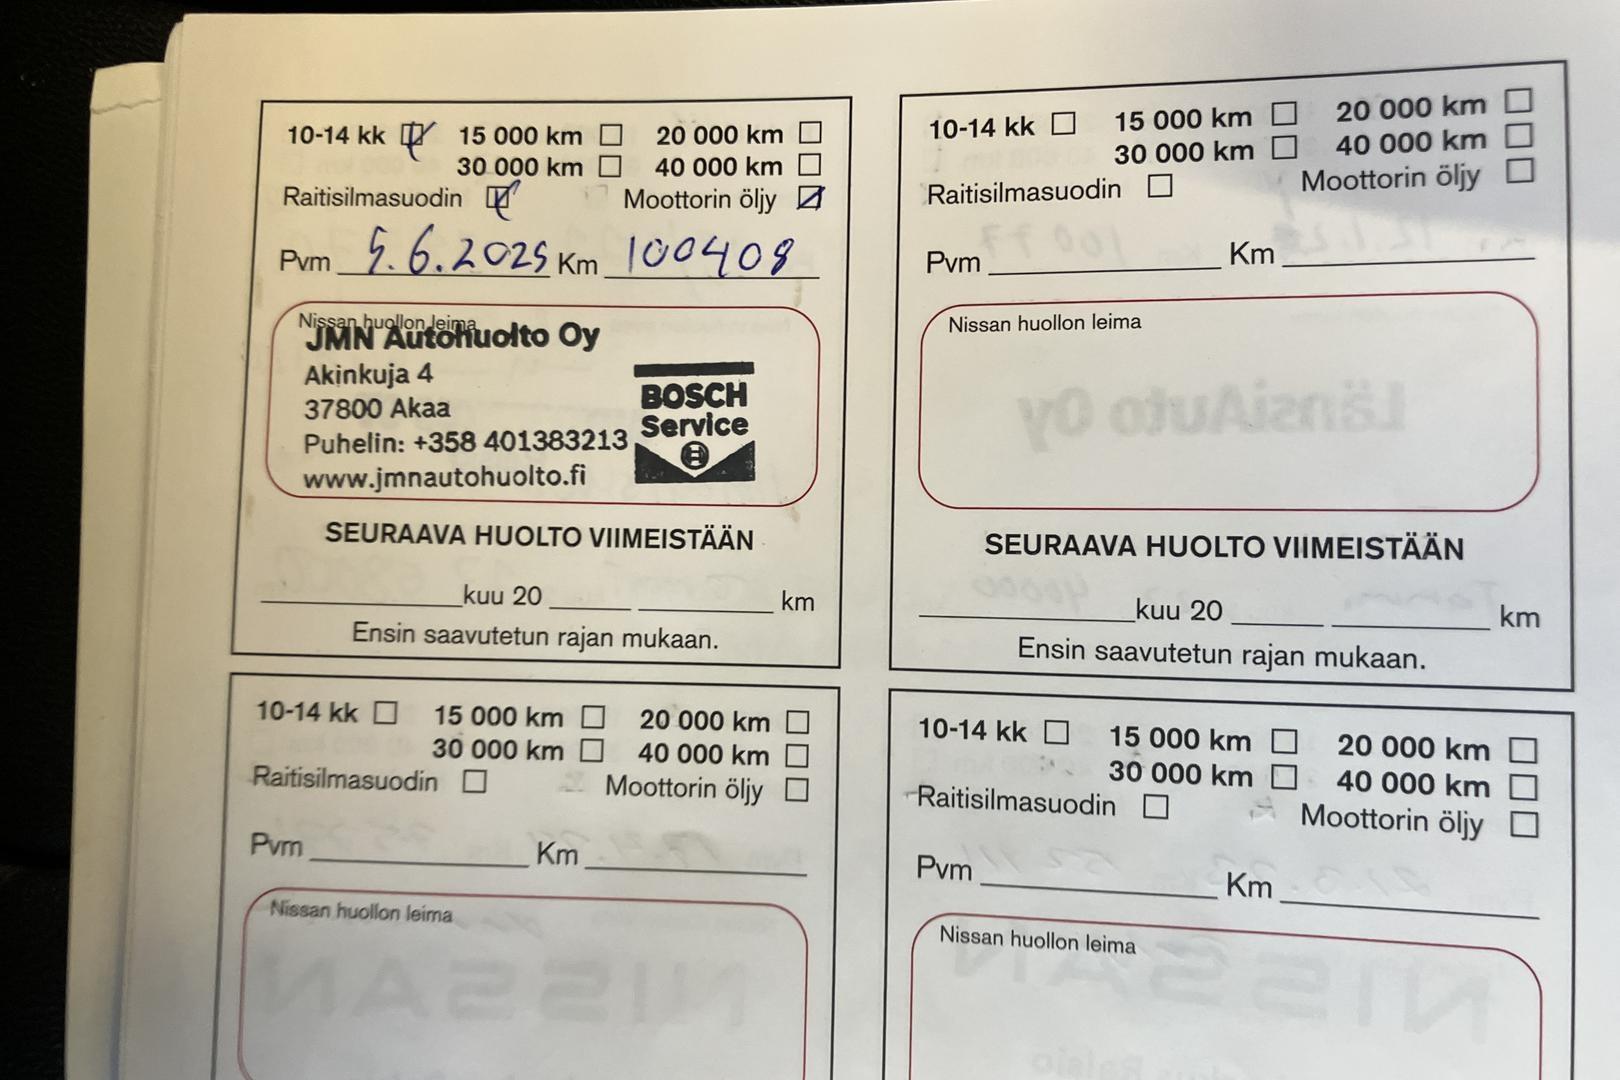 10-14 kk 15 000 km 20 000 km
30 000 km 40 000 km
Raitisilmasuodin Moottorin öljy
Pvm 5.6.2025 Km 100408
Nissan huollon leima
JMN Autohuolto Oy
Akinkuja 4
37800 Akaa
Puhelin: +358 401383213
www.jmnautohuolto.fi
BOSCH
Service
SEURAAVA HUOLTO VIIMEISTÄÄN
kuu 20 km
Ensin saavutetun rajan mukaan.
10-14 kk 15 000 km 20 000 km
30 000 km 40 000 km
Raitisilmasuodin Moottorin öljy
Pvm Km
Nissan huollon leima
LänsiAuto Oy
SEURAAVA HUOLTO VIIMEISTÄÄN
kuu 20 km
Ensin saavutetun rajan mukaan.
10-14 kk 15 000 km 20 000 km
30 000 km 40 000 km
Raitisilmasuodin Moottorin öljy
Pvm Km
Nissan huollon leima
NISSAN
10-14 kk 15 000 km 20 000 km
30 000 km 40 000 km
Raitisilmasuodin Moottorin öljy
Pvm Km
Nissan huollon leima
NISSAN